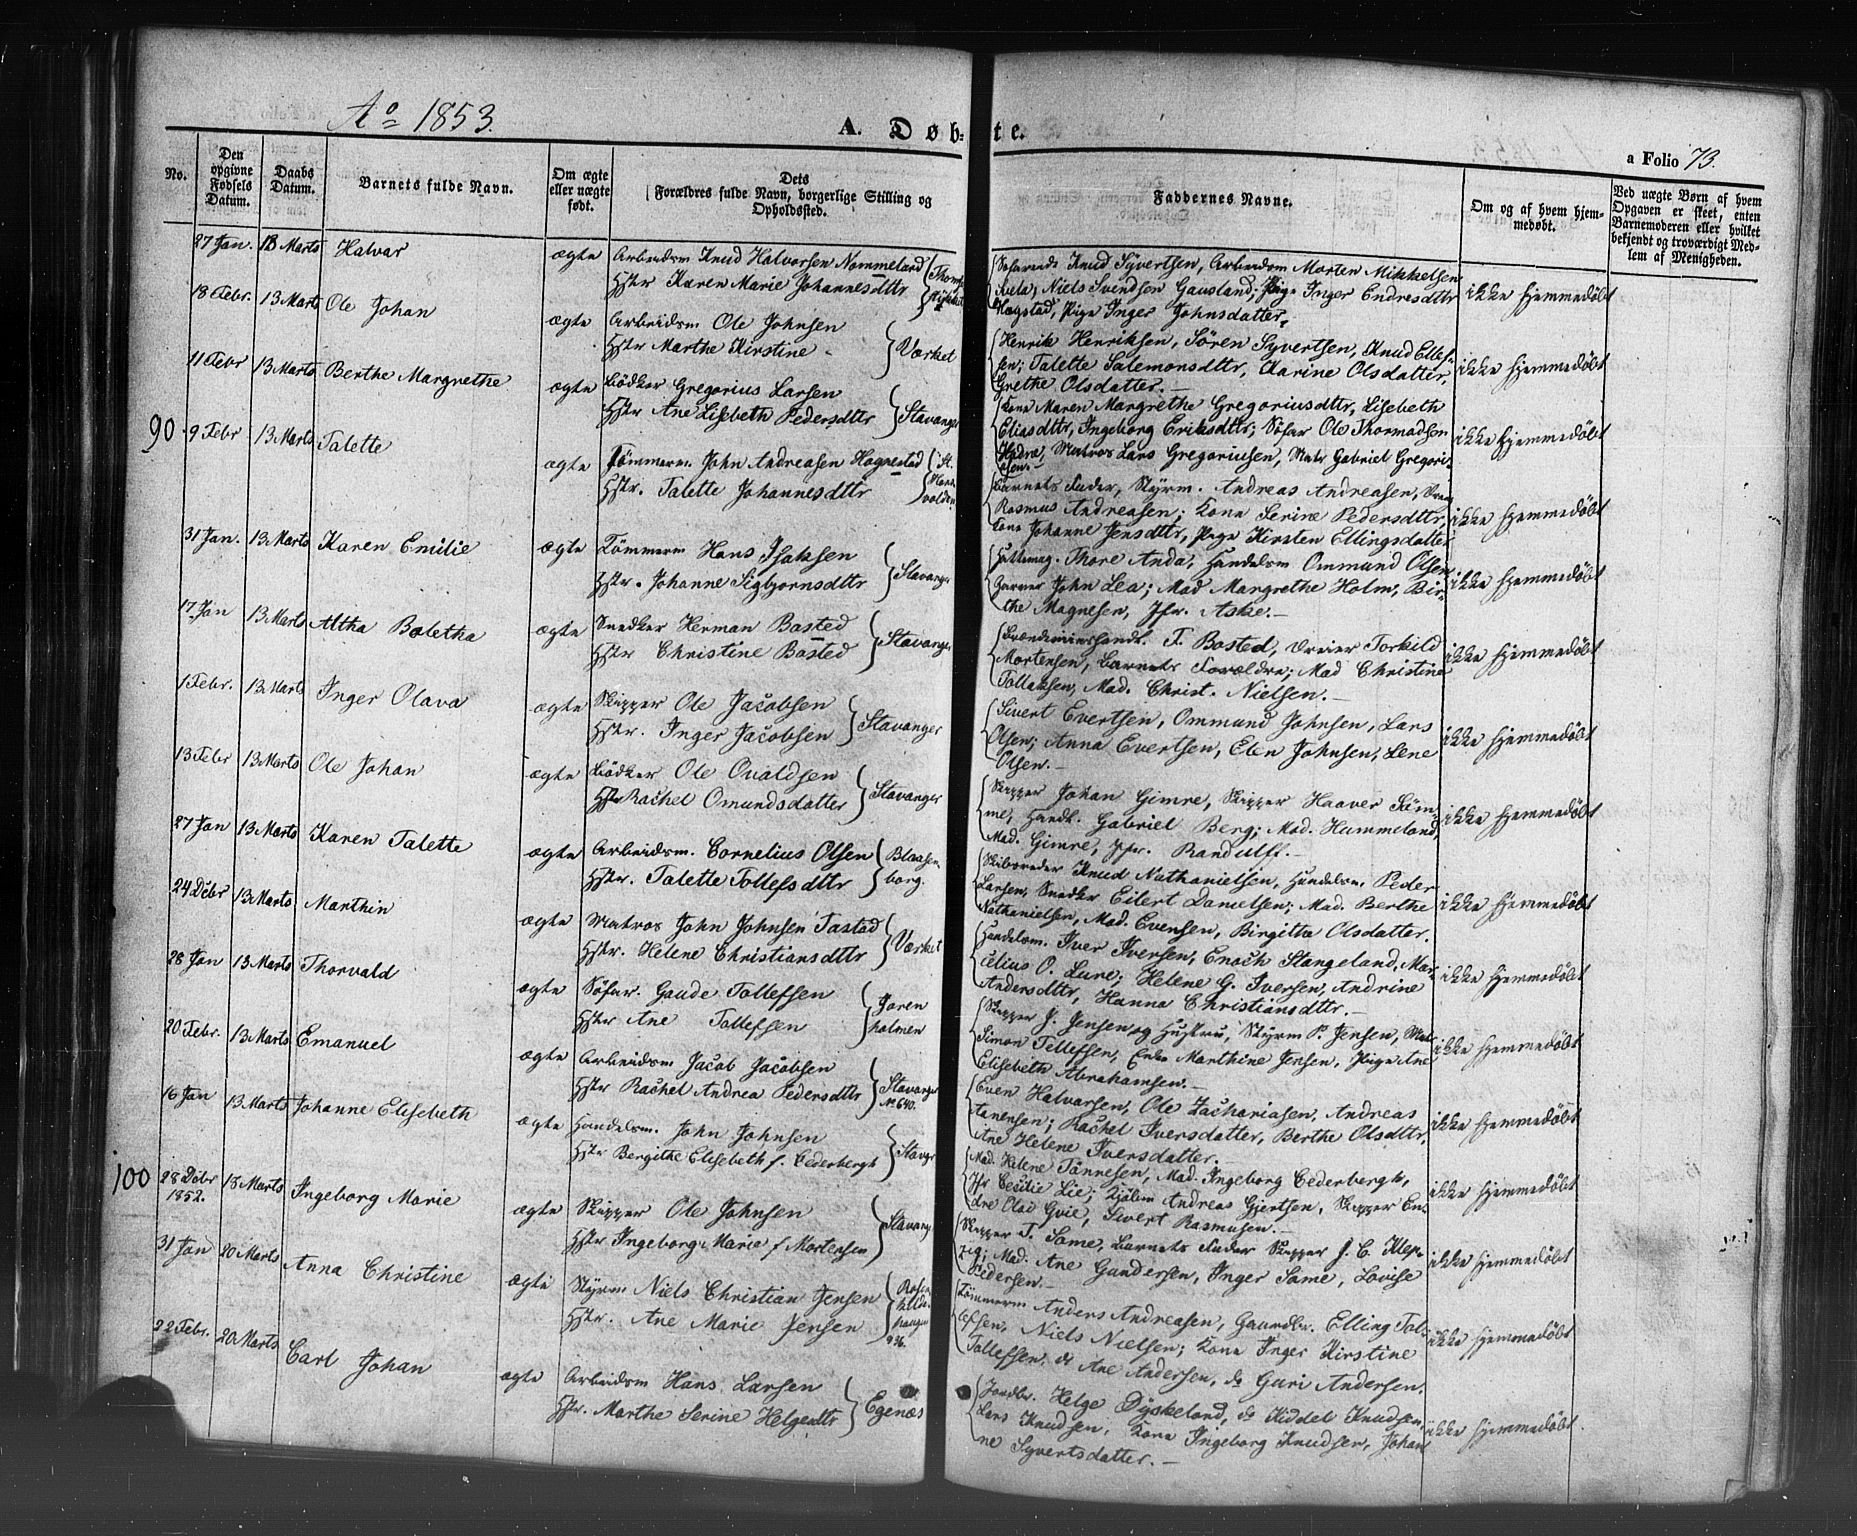 Ao 1853.
A. Døb-te.
a Folio 73.
No.
Den opgivne Fødsels Datum.
Daabs Datum.
Barnets fulde Navn.
Om ægte eller uægte født.
Dets Forældres fulde Navn, borgerlige Stilling og Opholdssted.
Faddernes Navne.
Om og af hvem hjemmedøbt.
Ved uægte Børn af hvem Opgaven er skeet, enten Barnemoderen eller hvilket bekjendt og troværdigt Medlem af Menigheden.
27 Jan. 13 Marts Halvar
ægte Arbeidsm Knud Halvorsen Nommeland
Hstr Karen Marie Johannesdttr
Knud Syvertsen, Arbeidsm Morten Mikkelsen
Niels Svendsen Gausland; Pige Inger Endresdttr
Høgstad, Pige Inger Johnsdatter,
ikke hjemmedøbt
18 Febr. 13 Marts Ole Johan
ægte Arbeidsm Ole Johnsen
Hstr Marthe Kirstine Værket
Henrik Henriksen, Sören Syvertsen, Knud Elles-
sen; Talette Salemonsdttr, Karine Olsdatter,
Grethe Olsdatter.
ikke hjemmedøbt
11 Febr 13 Marts Berthe Margrethe
ægte Bödker Gregorius Larsen
Hstr Ane Lisebeth Pedersdttr Stavanger
Kone Maren Margrethe Gregoriusdttr, Lisebeth
Eliasdttr, Ingeborg Eriksdttr; Söfar Ole Thormodsen
Hadræ, Matros Lars Gregoriusen, Matr Gabriel Gregori-
usen.
ikke hjemmedøbt
90 9 Febr 13 Marts Talette
ægte Tömmerm. John Andreasen Hognestad
Hstr. Talette Johannesdttr
Barnets Fader, Styrm. Andreas Andreasen,
Rasmus Andreasen; Kone Serine Pedersdttr,
Kone Johanne Jensdttr, Pige Kirsten Ellingsdatter
ikke hjemmedøbt
31 Jan. 13 Marts Karen Emilie
ægte Tömmerm Hans Isaksen
Hstr. Johanne Sigbjornsdttr Stavanger
Hattemag. Thore Anda, Handelsm Ommund Olsen
Garver John Lea; Mad Margrethe Holm, Bir-
the Magnesen, Jfr. Aske.
ikke hjemmedøbt
17 Jan 13 Marts Altha Boletha
ægte Snedker Herman Basted
Hstr Christine Basted Stavanger
Brændeviinshandl. T. Bosted, Torkild
Mortensen, Barnets Forældre; Mad Christine
Tollaksen, Mad. Christ. Nielsen.
ikke hjemmedøbt
1 Febr. 13 Marts Inger Olava
ægte Skipper Ole Jacobsen
Hstr. Inger Jacobsen Stavanger
Sivert Evertsen, Ommund Johnsen, Lars
Olsen; Anna Evertsen, Elen Johnsen, Lene
Olsen.
ikke hjemmedøbt
13 Febr 13 Marts Ole Johan
ægte Bödker Ole Ovaldsen
Hstr Rachel Omundsdatter Stavanger
Skipper Johan Gimre, Skipper Haaver Söm-
me, Handl. Gabriel Berg; Mad. Hummeland,
Mad. Gimre, Jfr. Randulff.
ikke hjemmedøbt
27 Jan 13 Marts Karen Talette
ægte Arbeidsm. Cornelius Olsen
Hstr. Talette Tollefsdttr Blaasen-
borg.
Skibsreder Knud Nathanielsen, Handelsm. Peder
Larsen, Snedker Eilert Danielsen; Mad. Berthe
Nathanielsen, Mad. Evensen, Birgitha Olsdatter.
ikke hjemmedøbt
24 Debr 13 Marts Marthin
ægte Matros John Johnsen Tastad
Hstr. Helene Christiansdttr Værket
Handelsm. Iver Iversen, Enoch Stangeland, Mar-
celius O. Lure; Helene G. Iversen, Andrine
Andersdttr, Hanna Christiansdttr.
ikke hjemmedøbt
28 Jan 13 Marts Thorvald
ægte Söfar. Gaude Tollefsen
Hstr Ane Tollefsen Joren
holmen
Skipper J. Jensen og Hustru, Styrm P. Jensen, Matr
Simon Tollefsen, Enke Marthine Jensen, Pige Ane
Elisebeth Abrahamsen.
ikke hjemmedøbt
20 Febr. 13 Marts Emanuel
ægte Arbeidsm Jacob Jacobsen
Hstr Rachel Andrea Pedersdttr Stavanger
No 640.
Even Halvorsen, Ole Zachariasen, Andreas
Aanensen; Rachel Iversdatter, Berthe Olsdttr,
Ane Helene Iversdatter.
ikke hjemmedøbt
16 Jan 13 Marts Johanne Elisebeth
ægte Handelsm. John Johnsen
Hstr Bergithe Elisebeth f. Cederbergh Stavgr
Mad. Helene Tönnesen, Mad. Ingeborg Cederbergh,
Jfr Cecilie Lie; Andreas Gjertsen, Skipper En-
dre Olai Gvie, Sivert Rasmusen.
ikke hjemmedøbt
100 28 Debr 1852. 18 Marts Ingeborg Marie
ægte Skipper Ole Johnsen
Hstr Ingeborg Marie f. Mortensen Stavang
Skipper T. Some, Barnets Fader Skipper J. C. Klep-
zig; Mad. Ane Gundersen, Inger Some, Lovise
Pedersen.
ikke hjemmedøbt
31 Jan 20 Marts Anna Christine
ægte Styrm Niels Christian Jensen
Hstr. Ane Marie Jensen
936.
Tömmerm Anders Andreasen, Gaardbr. Elling Tol-
lefsen, Niels Nielsen; Kone Inger Kirstine
Tollefsen, do Ane Andersen, do Guri Andersen.
ikke hjemmedøbt
22 Febr. 20 Marts Carl Johan
ægte Arbeidsm Hans Larsen
Hstr. Marthe Serine Helgesdttr Egenæs
Jordbr. Helge Dyskeland, do Kiddel Knudsen,
Lars Knudsen, Kone Ingeborg Knudsen, Johan
ne Syvertsdatter.
ikke hjemmedøbt